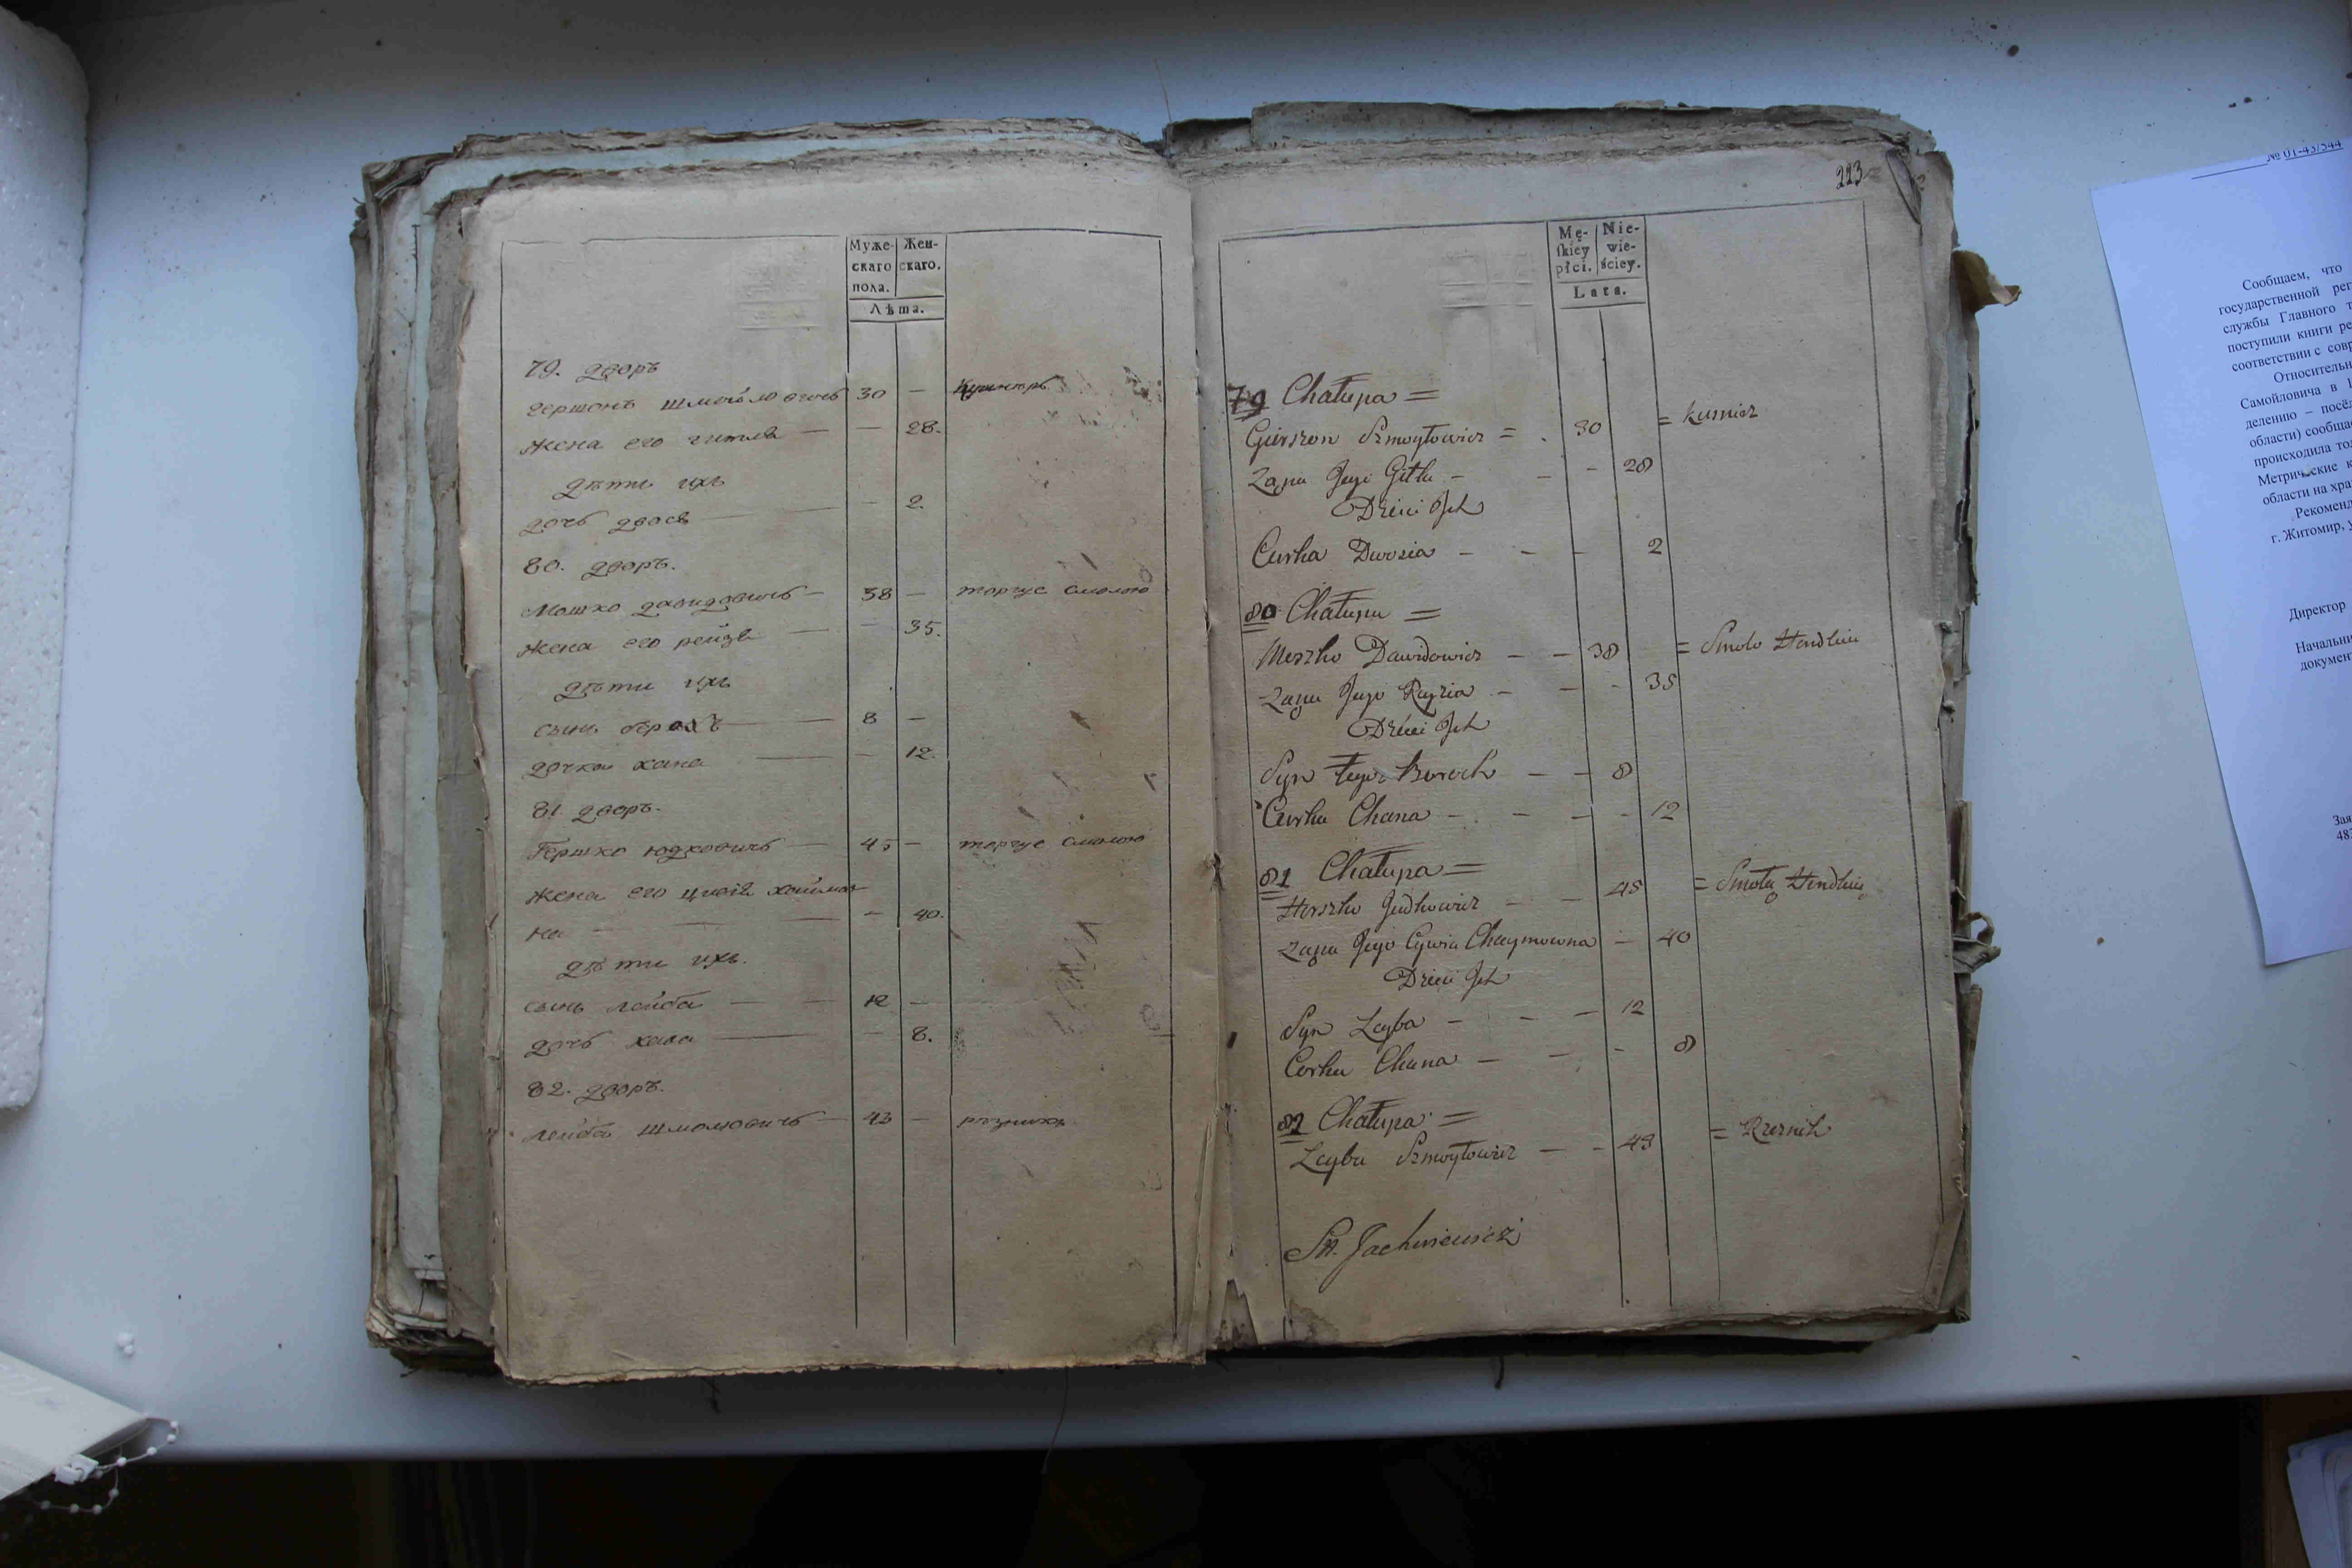 Муже-
скаго
пола.
Жен-
скаго.
Лѣта.
79. дворъ
Гершонъ Шмойловичъ 30 —
жена его гитля — — 28.
дѣти ихъ
дочь двося — — 2.
80. дворъ.
Мошко давидовичъ — 38 — торгуе смолою
жена его рейзя — — 35.
дѣти ихъ
сынъ — 8 —
дочка хана — — 12.
81. дворъ.
Гершко юдковичъ — 45 — торгуе смолою
жена его цивія хаймов
на — — 40.
дѣти ихъ.
сынъ лейба — — 12 —
дочь хана — — 8.
82. дворъ.
лейба шмолювичъ — 43 — рѣзникъ
223
Mę-
skiey
płci.
Nie-
wie-
ściey.
Lata.
79 Chałupa =
Gierszon Szmoyłowicz = . 30 = kusnierz
Zana Jego Gitla — — - 28
Dzieci Jch
Curka Dwosia — — — 2
80 Chałupa =
Moszko Dawidowicz — — 38 = Smolo Hendluie
Zana Jego Rayzia — — - 35
Dzieci Jch
Syn Jego Boroch — — 8
Curka Chana — — — - 12
81 Chałupa =
Herszko Judkowicz — — 45 = Smołą Hendluie
Zana Jego Cywia Chaymowna — 40
Dzieci Jch
Syn Leyba — — — 12
Corka Chana — — - 8
82 Chałupa =
Leyba Szmoyłowicz — - 43 = Rzeznik
№ 01-43/544
Сообщаем, что
государственной рег
службы Главного т
поступили книги ре
соответствии с совр
Относительн
Самойловича в
делению – посё
области) сообща
происходила то
Метрические к
области на хра
Рекоменд
г. Житомир, у
Директор
Начальни
докумен